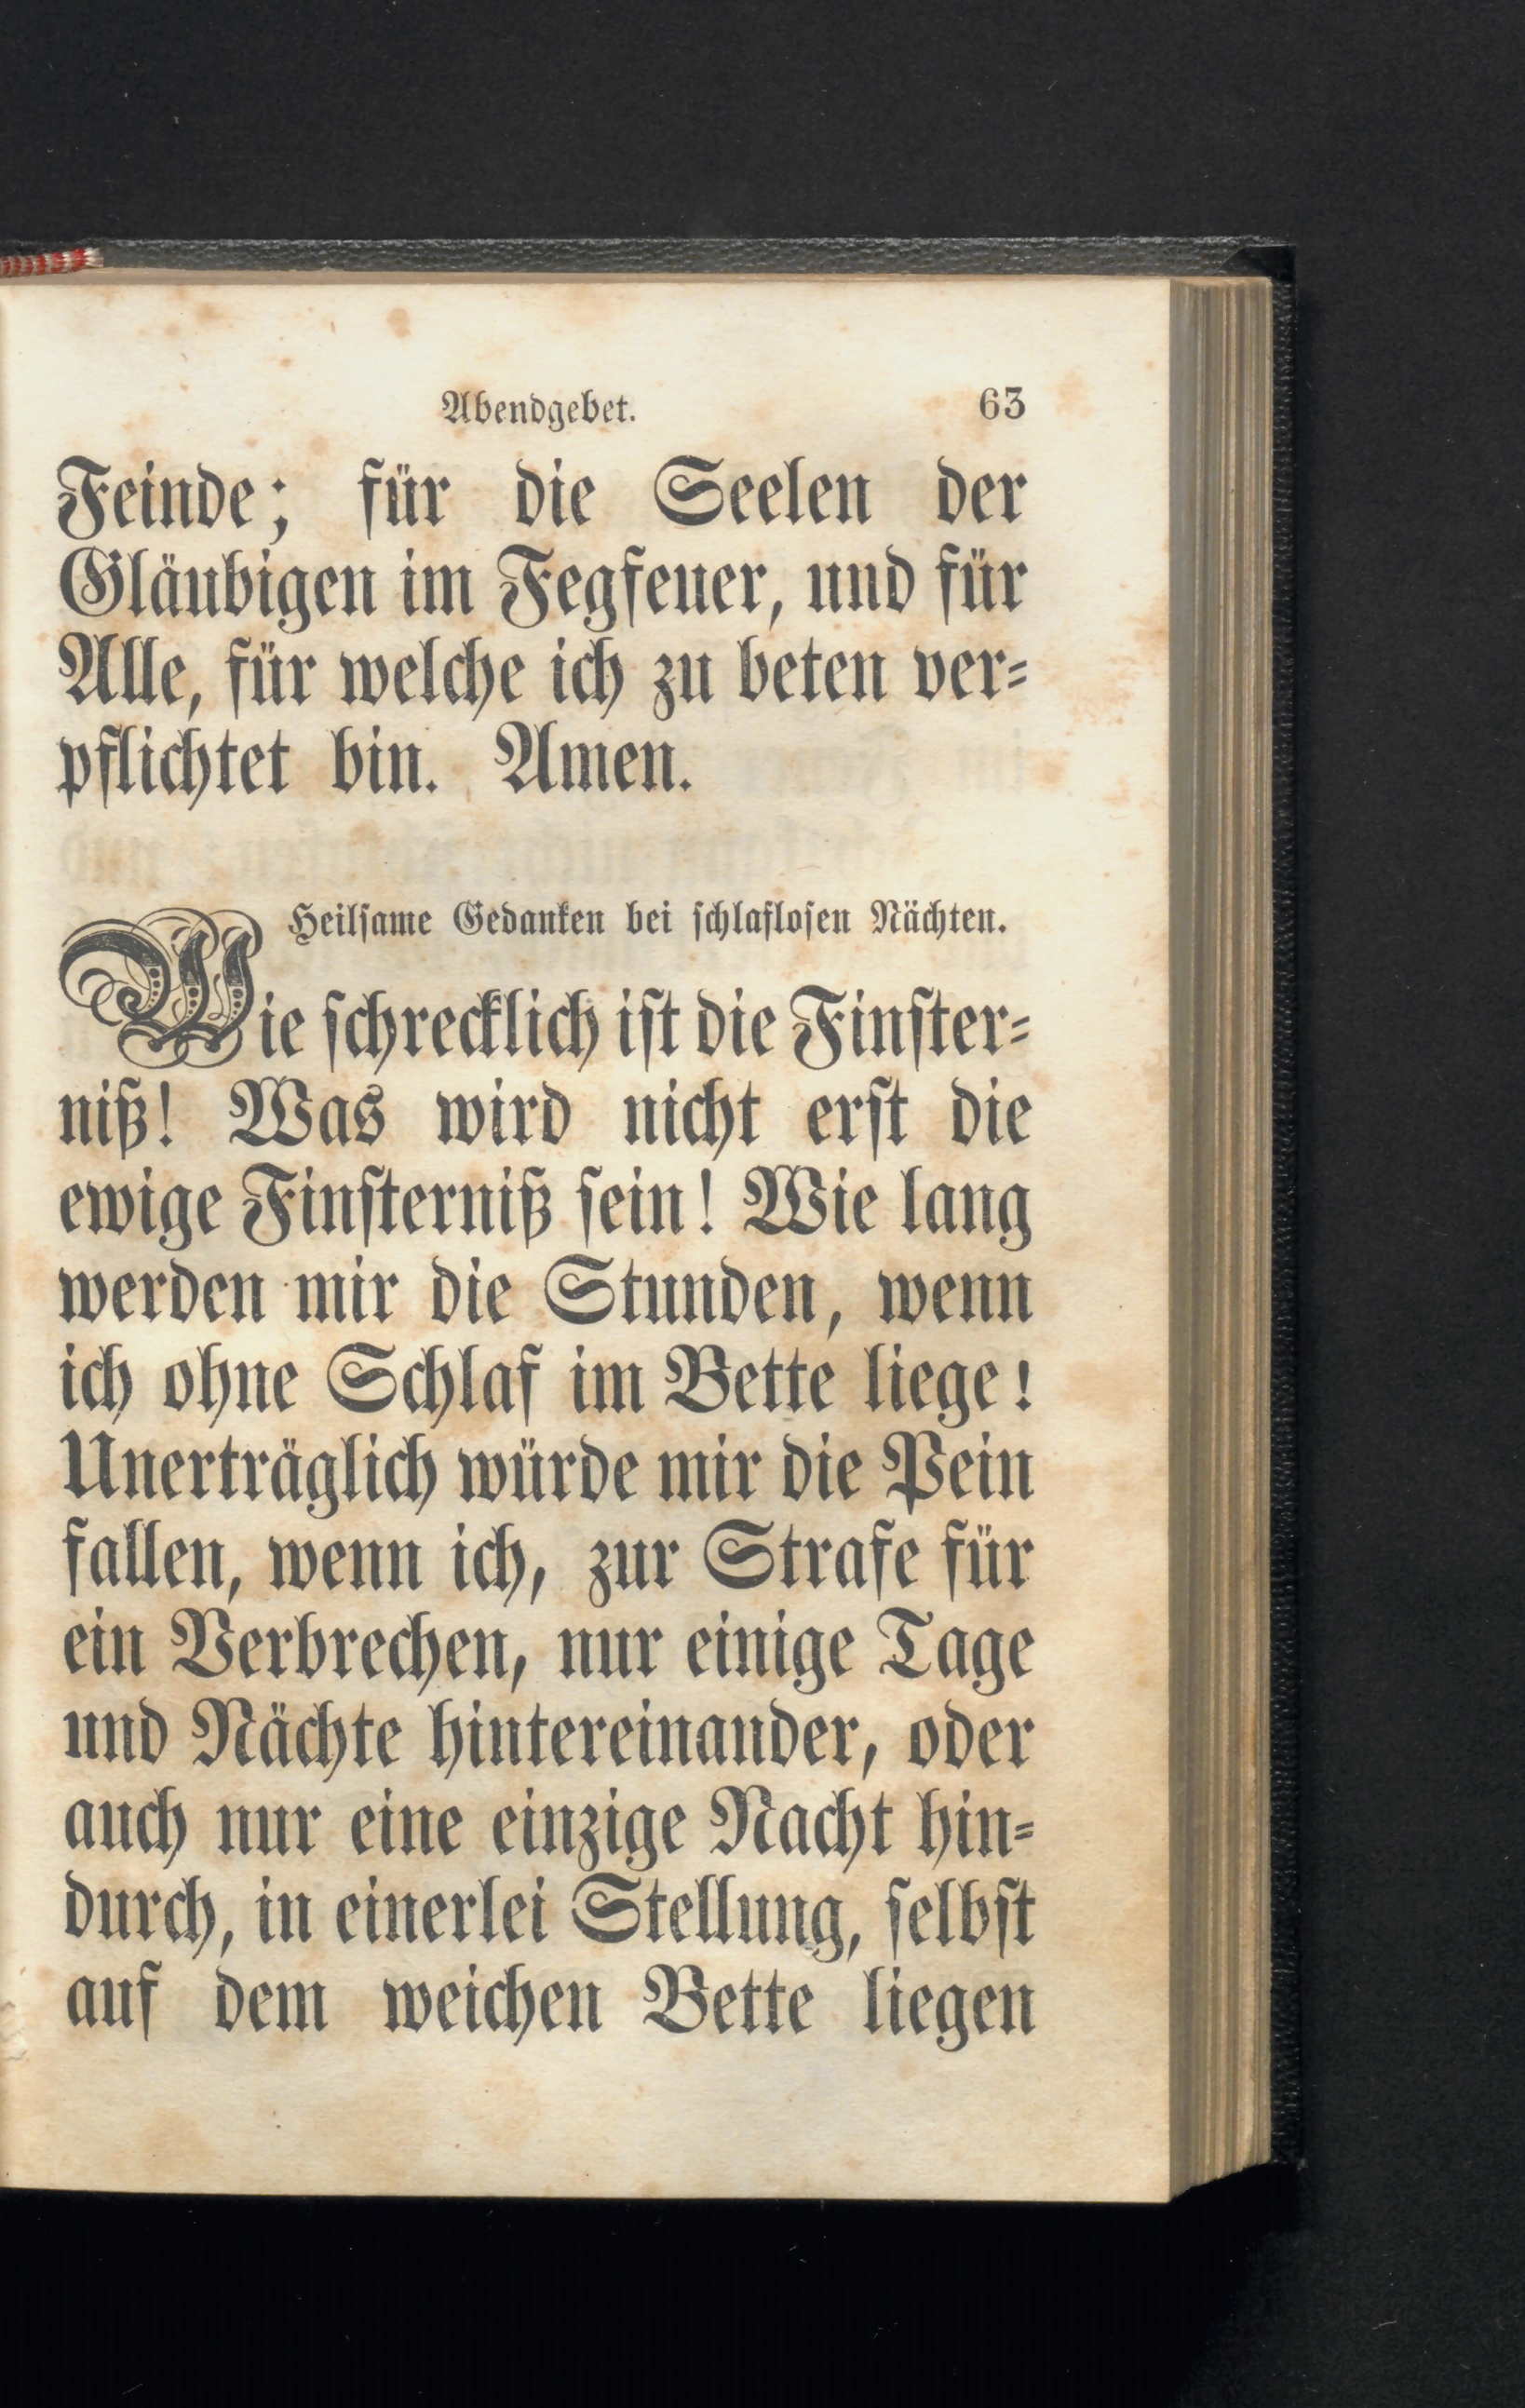 Abendgebet. 63
Feinde; für die Seelen der
Gläubigen im Fegfeuer, und für
Alle, für welche ich zu beten ver⸗
pflichtet bin. Amen.
Heilſame Gedanken bei ſchlafloſen Nächten.
Wie ſchrecklich iſt die Finſter⸗
niß! Was wird nicht erſt die
ewige Finſterniß ſein! Wie lang
werden mir die Stunden, wenn
ich ohne Schlaf im Bette liege!
Unerträglich würde mir die Pein
fallen, wenn ich, zur Strafe für
ein Verbrechen, nur einige Tage
und Nächte hintereinander, oder
auch nur eine einzige Nacht hin⸗
durch, in einerlei Stellung, ſelbſt
auf dem weichen Bette liegen